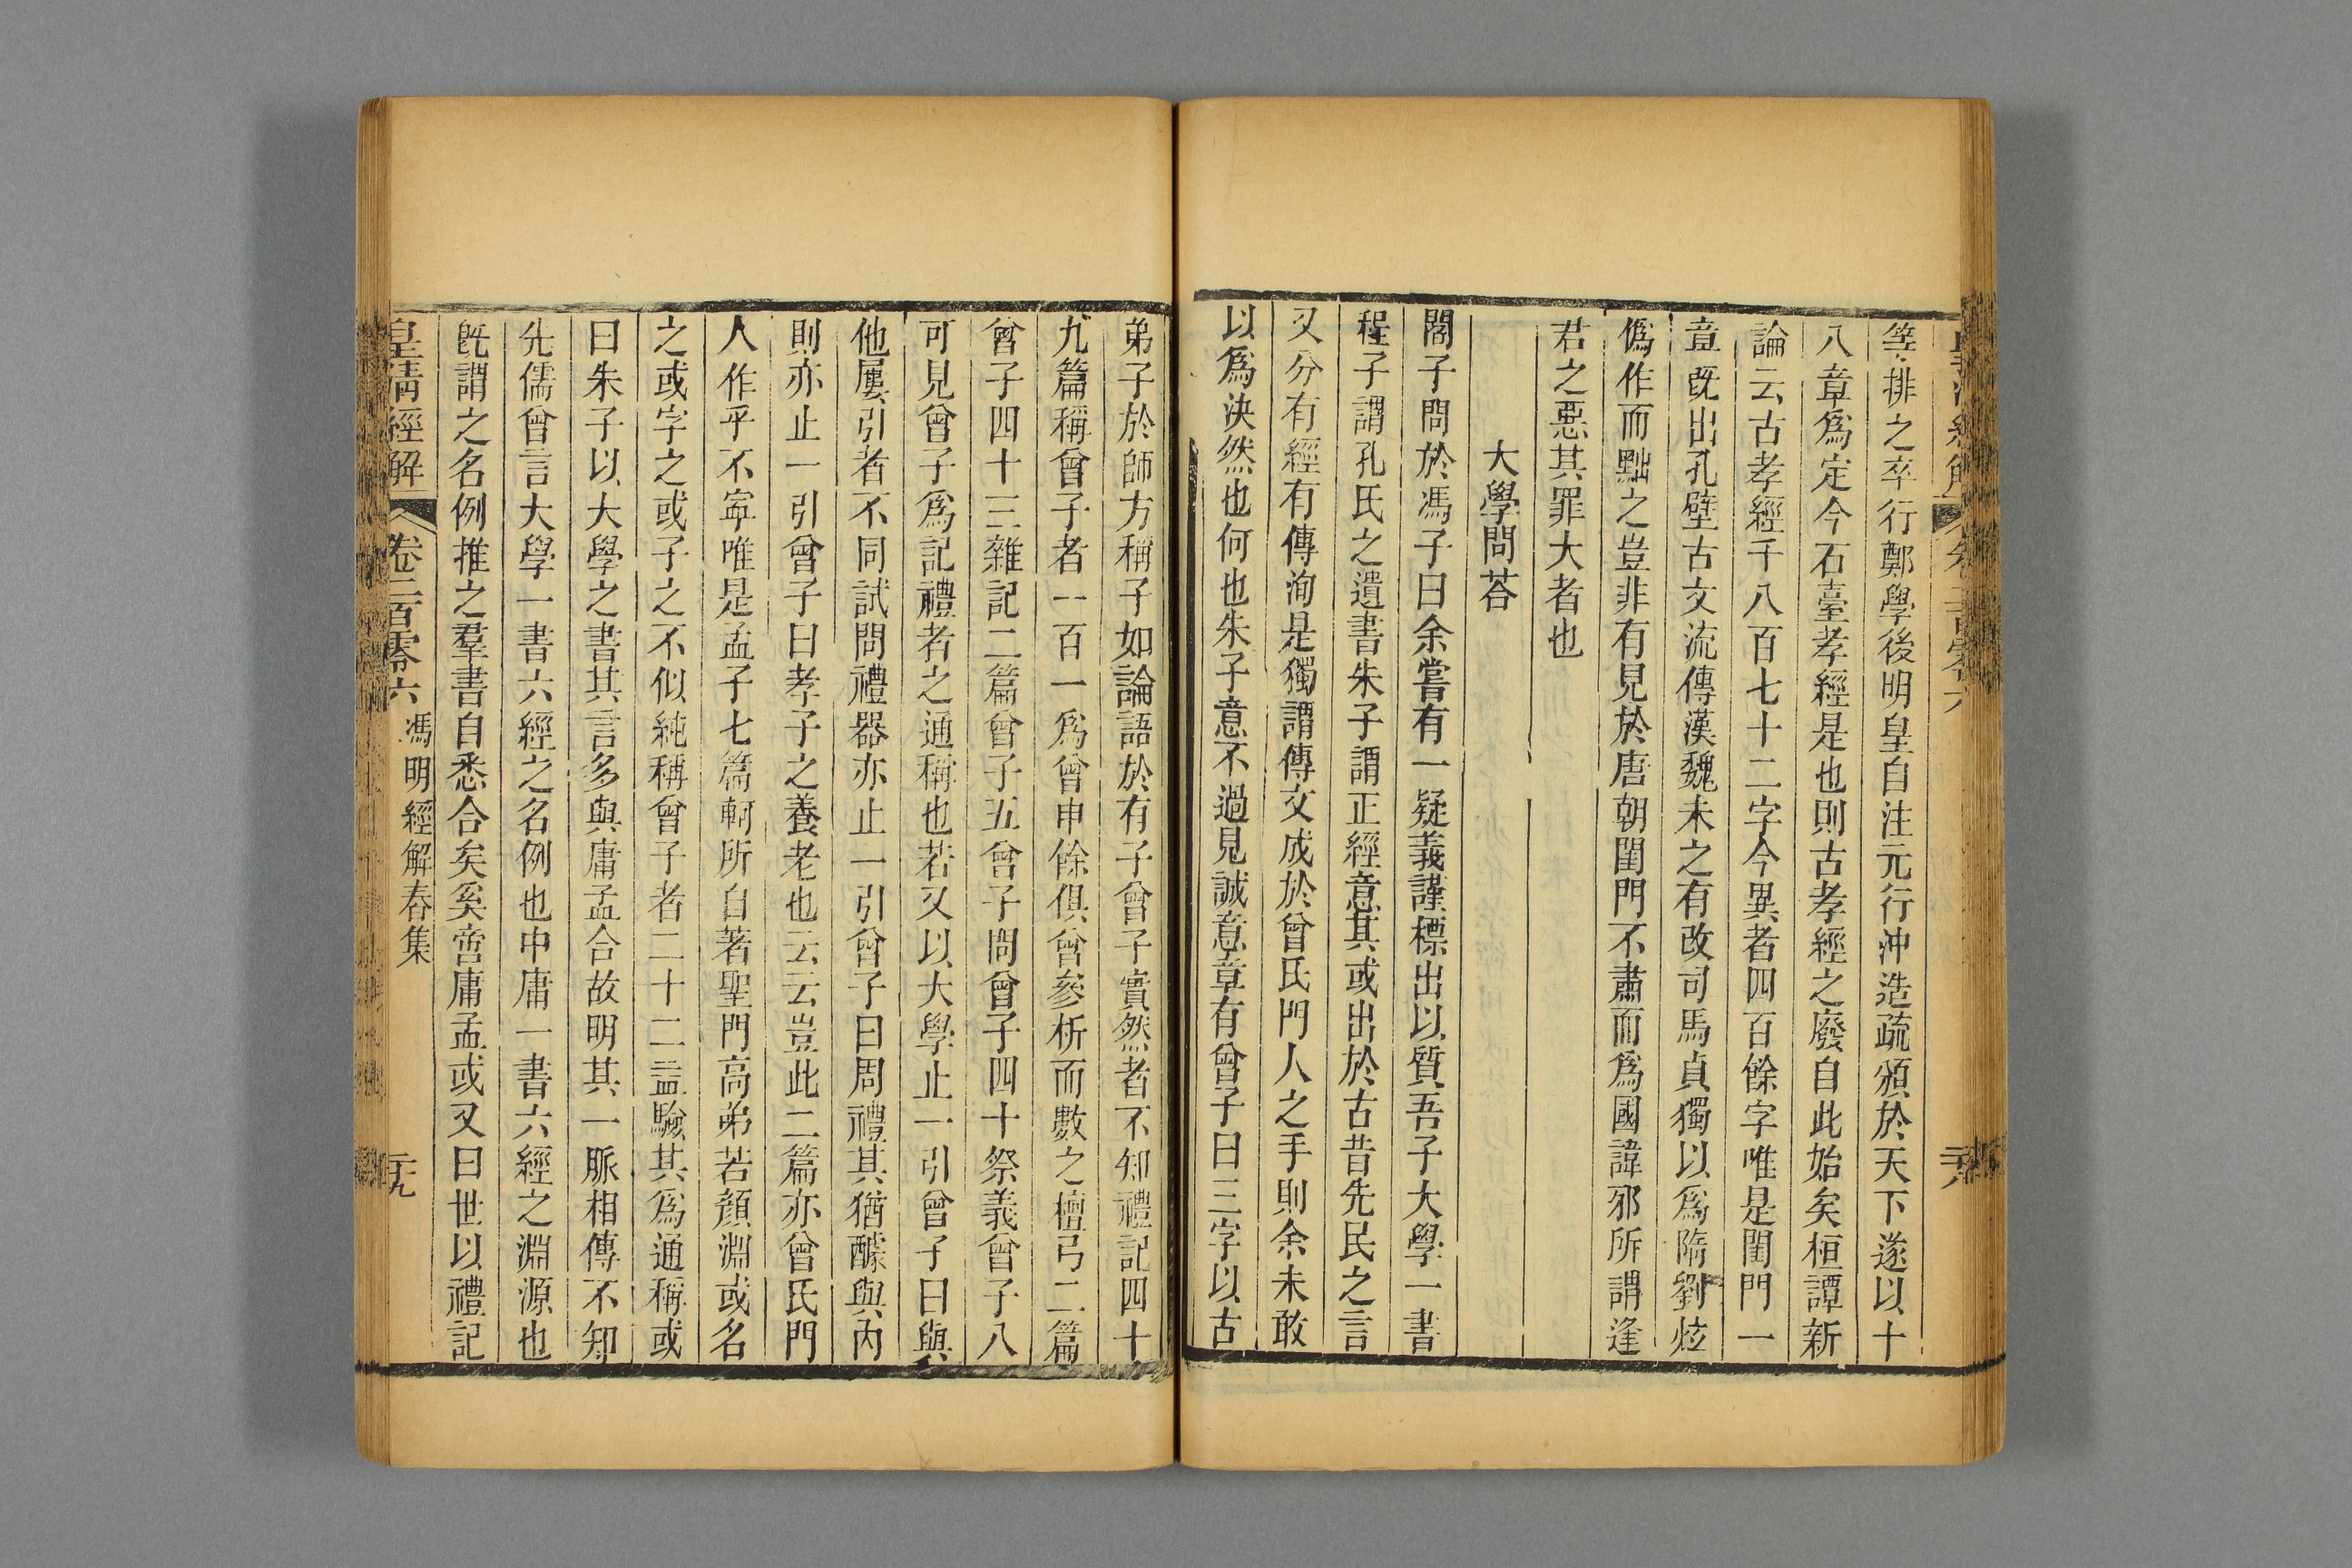 等排之卒行鄭學後明皇自注元行沖造疏頒於天下遂以十
八章爲定今石臺孝經是也則古孝經之廢自此始矣桓譚新
論云古孝經千八百七十二字今異者四百餘字唯是閨門一
章既出孔壁古文流傳漢魏未之有改司馬貞獨以爲隋劉炫
僞作而黜之豈非有見於唐朝閨門不肅而爲國諱邪所謂逢
君之惡其罪大者也
大學問荅
閻子問於馮子曰余嘗有一疑義謹標出以質吾子大學一書
程子謂孔氏之遺書朱子謂正經意其或出於古昔先民之言
又分有經有傳洵是獨謂傳文成於曾氏門人之手則余未敢
以爲決然也何也朱子意不過見誠意章有曾子曰三字以古
弟子於師方稱子如論語於有子曾子實然者不知禮記四十
九篇稱曾子者一百一爲曾申餘俱曾參析而數之檀弓二篇
曾子四十三雜記二篇曾子五曾子問曾子四十祭義曾子八
可見曾子爲記禮者之通稱也若又以大學止一引曾子曰與
他屢引者不同試問禮器亦止一引曾子曰周禮其猶醵與內
則亦止一引曾子曰孝子之養老也云云豈此二篇亦曾氏門
人作乎不寧唯是孟子七篇軻所自著聖門高弟若顏淵或名
之或字之或子之不似純稱曾子者二十二益驗其爲通稱或
曰朱子以大學之書其言多與庸孟合故明其一脈相傳不知
先儒曾言大學一書六經之名例也中庸一書六經之淵源也
旣謂之名例推之羣書自悉合矣奚啻庸孟或又曰世以禮記
皇清經解 卷二百零六 馮明經解舂集 二十九